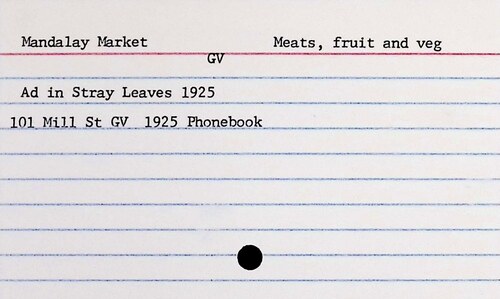 Mandalay Market Meats, fruit and veg
GV
Ad in Stray Leaves 1925
101 Mill St GV 1925 Phonebook